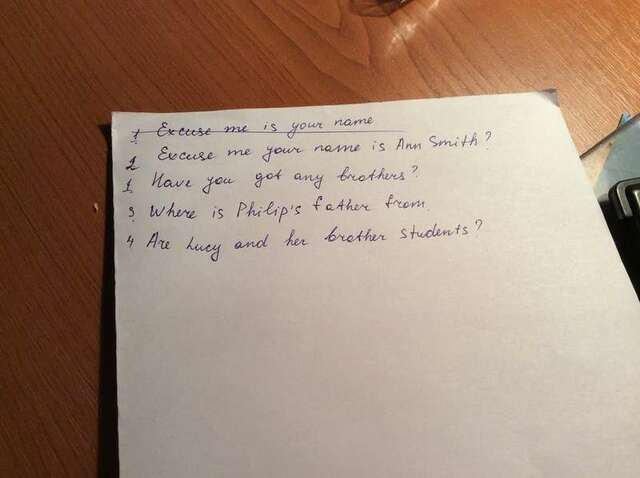 1 Excuse me is your name
2 Excuse me your name is Ann Smith?
1 Have you got any brothers?
3 Where is Philip's father from.
4 Are Lucy and her brother students?